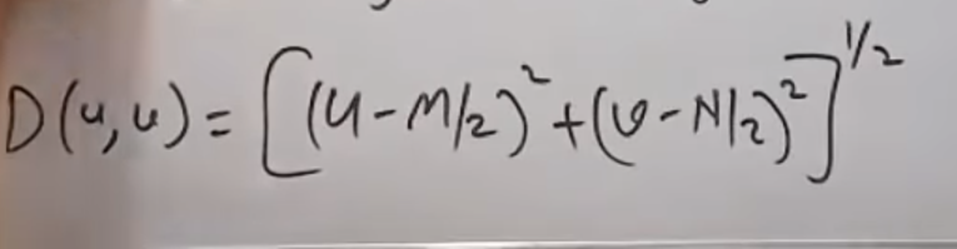 D(u,v) = [(u-M/2)² + (v-N/2)²]^1/2